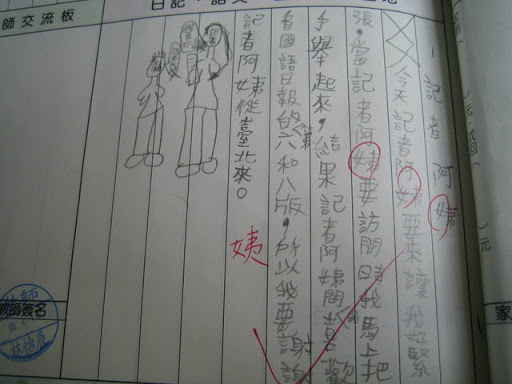 記者阿姨
今天記者阿姨要來讓我好緊
張，當記者阿姨要訪問時我馬上把
手舉起來，結果記者阿姨問喜歡
看國語日報的第六和八版，所以我要謝謝
記者阿姨從臺北來。
姨
師交流板
師簽名
家